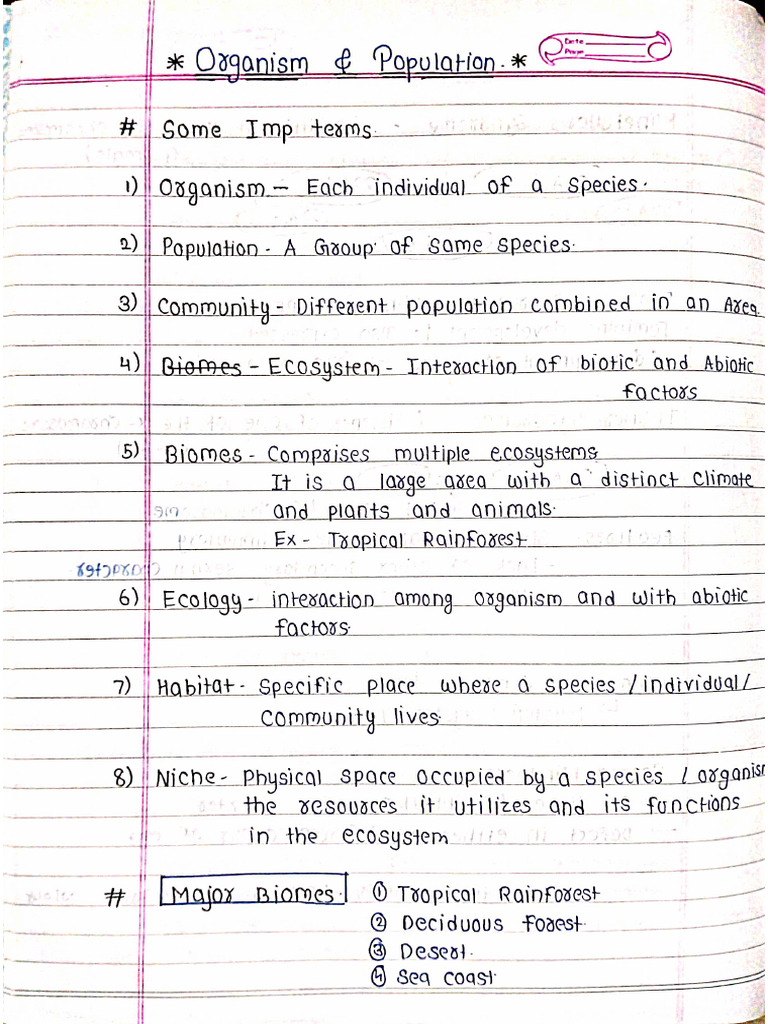 * Organism & Population. *
Date
Page
# Some Imp terms.
1) Organism - Each individual of a species.
2) Population - A Group of same species.
3) Community - Different population combined in an Area.
4) ~~Biomes~~ - Ecosystem - Interaction of biotic and Abiotic
factors
5) Biomes - Comprises multiple ecosystems
It is a large area with a distinct climate
and plants and animals.
Ex - Tropical Rainforest
6) Ecology - interaction among organism and with abiotic
factors.
7) Habitat - Specific place where a species / individual /
community lives.
8) Niche - Physical space occupied by a species / organism
the resources it utilizes and its functions
in the ecosystem
# Major Biomes. ① Tropical Rainforest
② Deciduous forest.
③ Desert.
④ Sea coast